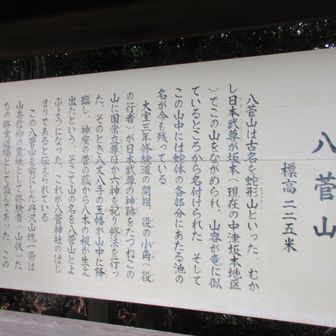 八菅山
標高二二五米
八菅山は古名を蛇形山といった、むか
し日本武尊が坂本(現在の中津坂本地区
)でこの山をながめられ、山容が竜に似
ているところから名付けられた、そして
この山中には蛇体の各部分にあたる池の
名が今も残っている
大宝三年修験道の開祖、役の小角(役
の行者)が日本武尊の神跡をたづねこの
山に国常立尊ほか六神を祀り修法を行っ
た、そのとき八丈八手の玉幡が山中に降
臨し、神座の菅の菰から八本の根が生え
出たという、そこで山の名を八菅山とよ
ぶようになった、これが八菅神社のはじ
まりであると伝えられている
この八菅山を前にした幣沢山塊一帯は
山岳信仰の霊地として修験者(山伏)た
ちの修業道場として盛んであった、この